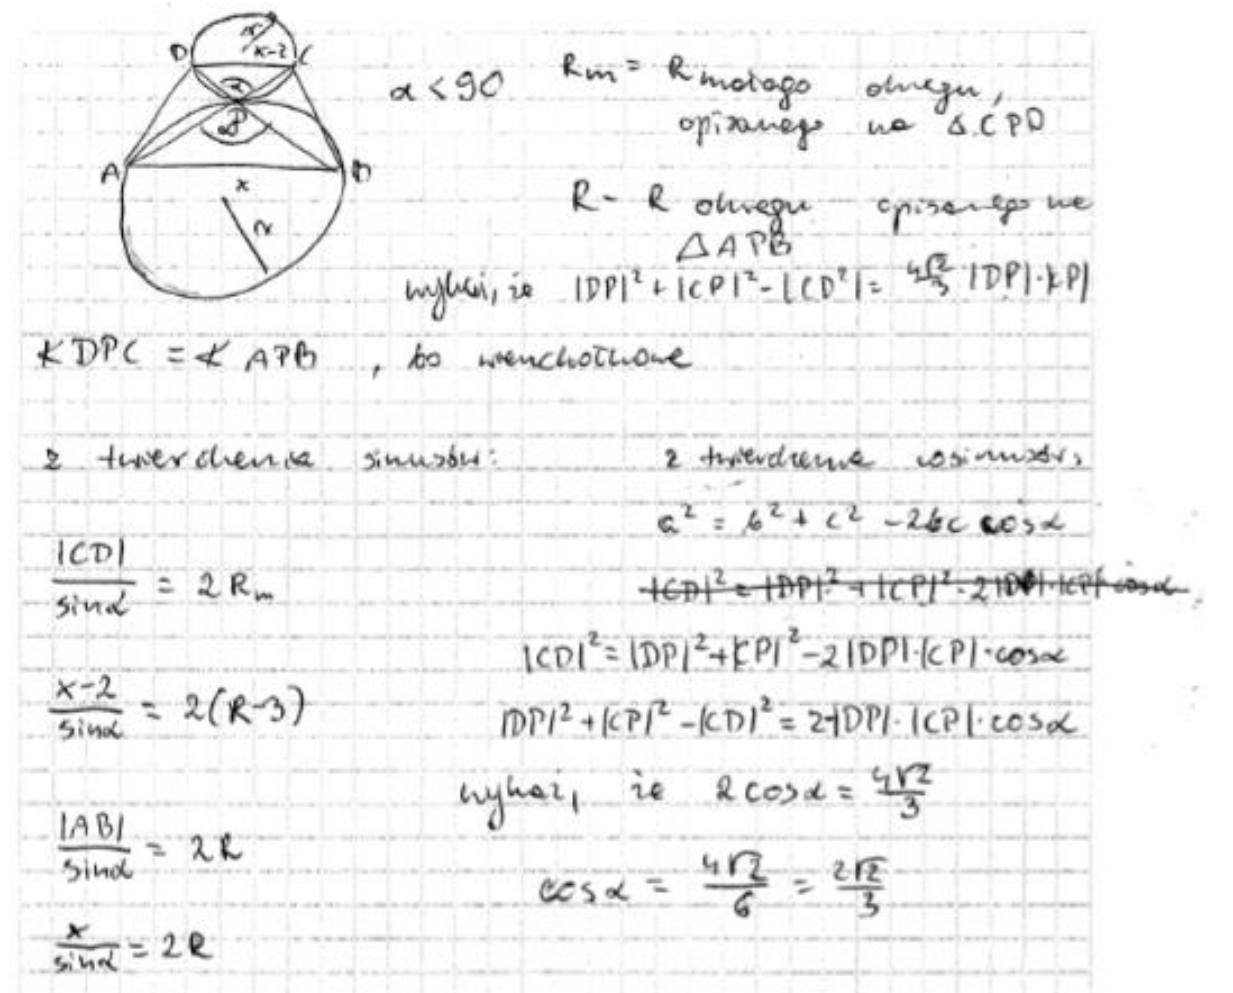 D r x-2 C
α
P
A B
x
r
α < 90
Rm = R małego okręgu,
opisanego na Δ CPD
R - R okręgu opisanego na
Δ APB
wykaż, że |DP|² + |CP|² - |CD²| = 4√2/3 |DP|·|CP|
∢ DPC = ∢ APB, bo wierzchołkowe
z twierdzenia sinusów:
|CD|/sinα = 2Rm
x-2/sinα = 2(R-3)
|AB|/sinα = 2R
x/sinα = 2R
z twierdzenia cosinusów:
a² = b² + c² - 2bc cosα
|CD|² = |DP|² + |CP|² - 2|DP|·|CP| cosα
|CD|² = |DP|² + |CP|² - 2|DP|·|CP|·cosα
|DP|² + |CP|² - |CD|² = 2·|DP|·|CP|·cosα
wykaż, że 2cosα = 4√2/3
cosα = 4√2/6 = 2√2/3